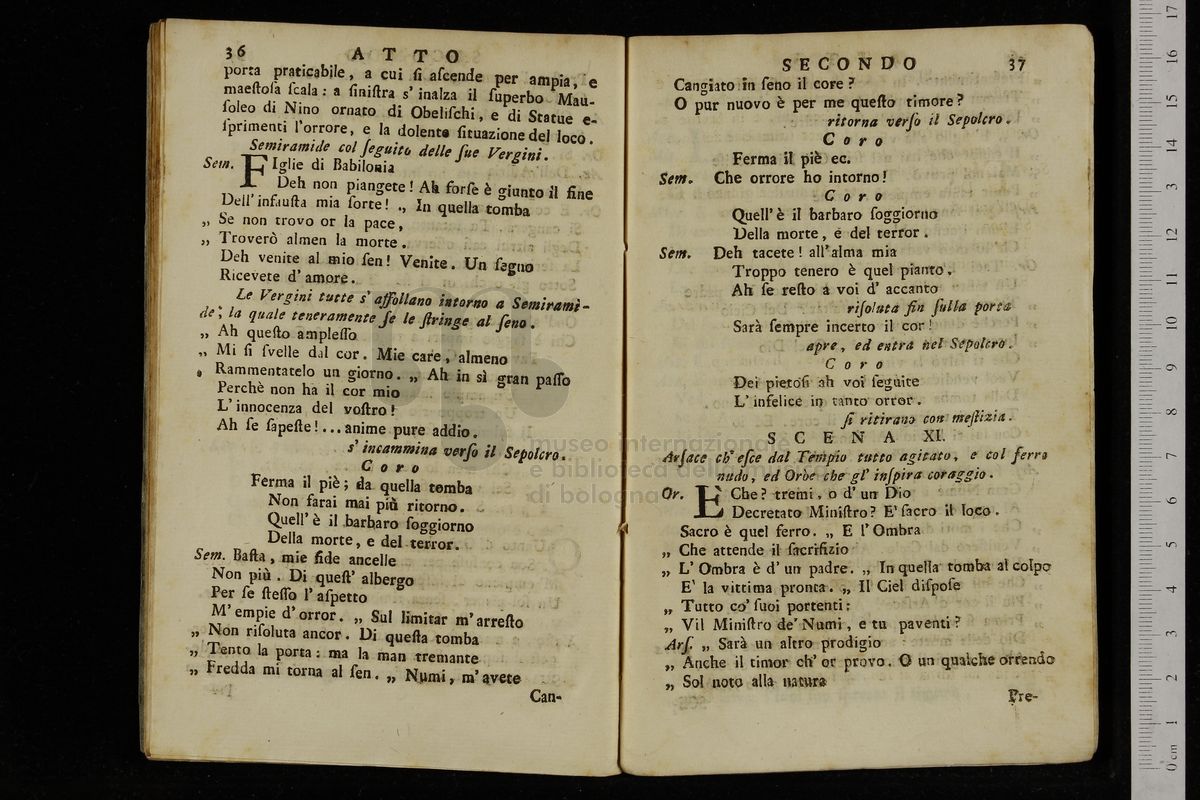 36 ATTO
porta praticabile, a cui ſi aſcende per ampia, e
maeſtoſa ſcala: a ſiniſtra s' inalza il ſuperbo Mau-
ſoleo di Nino ornato di Obeliſchi, e di Statue e-
ſprimenti l'orrore, e la dolente ſituazione del loco.
Semiramide col ſeguito delle ſue Vergini.
Sem. FIglie di Babilonia
Deh non piangete! Ah forſe è giunto il fine
Dell' infauſta mia ſorte! „ In quella tomba
„ Se non trovo or la pace,
„ Troverò almen la morte.
Deh venite al mio ſen! Venite. Un ſegno
Ricevete d' amore.
Le Vergini tutte s' affollano intorno a Semirami-
de, la quale teneramente ſe le ſtringe al ſeno.
„ Ah queſto ampleſſo
„ Mi ſi ſvelle dal cor. Mie care, almeno
„ Rammentatelo un giorno. „ Ah in sì gran paſſo
Perchè non ha il cor mio
L' innocenza del voſtro!
Ah ſe ſapeſte!... anime pure addio.
s' incammina verſo il Sepolcro.
Coro
Ferma il piè; da quella tomba
Non farai mai più ritorno.
Quell' è il barbaro ſoggiorno
Della morte, e del terror.
Sem. Baſta, mie fide ancelle
Non più. Di queſt' albergo
Per ſe ſteſſo l' aſpetto
M' empie d' orror. „ Sul limitar m' arreſto
„ Non riſoluta ancor. Di queſta tomba
„ Tento la porta: ma la man tremante
„ Fredda mi torna al ſen. „ Numi, m' avete
Can-
SECONDO 37
Cangiato in ſeno il core?
O pur nuovo è per me queſto timore?
ritorna verſo il Sepolcro.
Coro
Ferma il piè ec.
Sem. Che orrore ho intorno!
Coro
Quell' è il barbaro ſoggiorno
Della morte, e del terror.
Sem. Deh tacete! all' alma mia
Troppo tenero è quel pianto,
Ah ſe reſto a voi d' accanto
riſoluta fin ſulla porta
Sarà ſempre incerto il cor!
apre, ed entra nel Sepolcro.
Coro
Dei pietoſi ah voi ſeguite
L' infelice in tanto orror.
ſi ritirano con meſtizia.
SCENA XI.
Arſace ch' eſce dal Tempio tutto agitato, e col ferro
nudo, ed Oròe che gl' inſpira coraggio.
Or. È Che? tremi, o d' un Dio
Decretato Miniſtro? E' ſacro il loco.
Sacro è quel ferro. „ E l' Ombra
„ Che attende il ſacrifizio
„ L' Ombra è d' un padre. „ In quella tomba al colpo
E' la vittima pronta. „ Il Ciel diſpoſe
„ Tutto co' ſuoi portenti:
„ Vil Miniſtro de' Numi, e tu paventi?
Arſ. „ Sarà un altro prodigio
„ Anche il timor ch' or provo. O un qualche orrendo
„ Sol noto alla natura
Pre-
museo internazionale
e biblioteca della musica
di bologna
0 cm 1 2 3 4 5 6 7 8 9 10 11 12 13 14 15 16 17